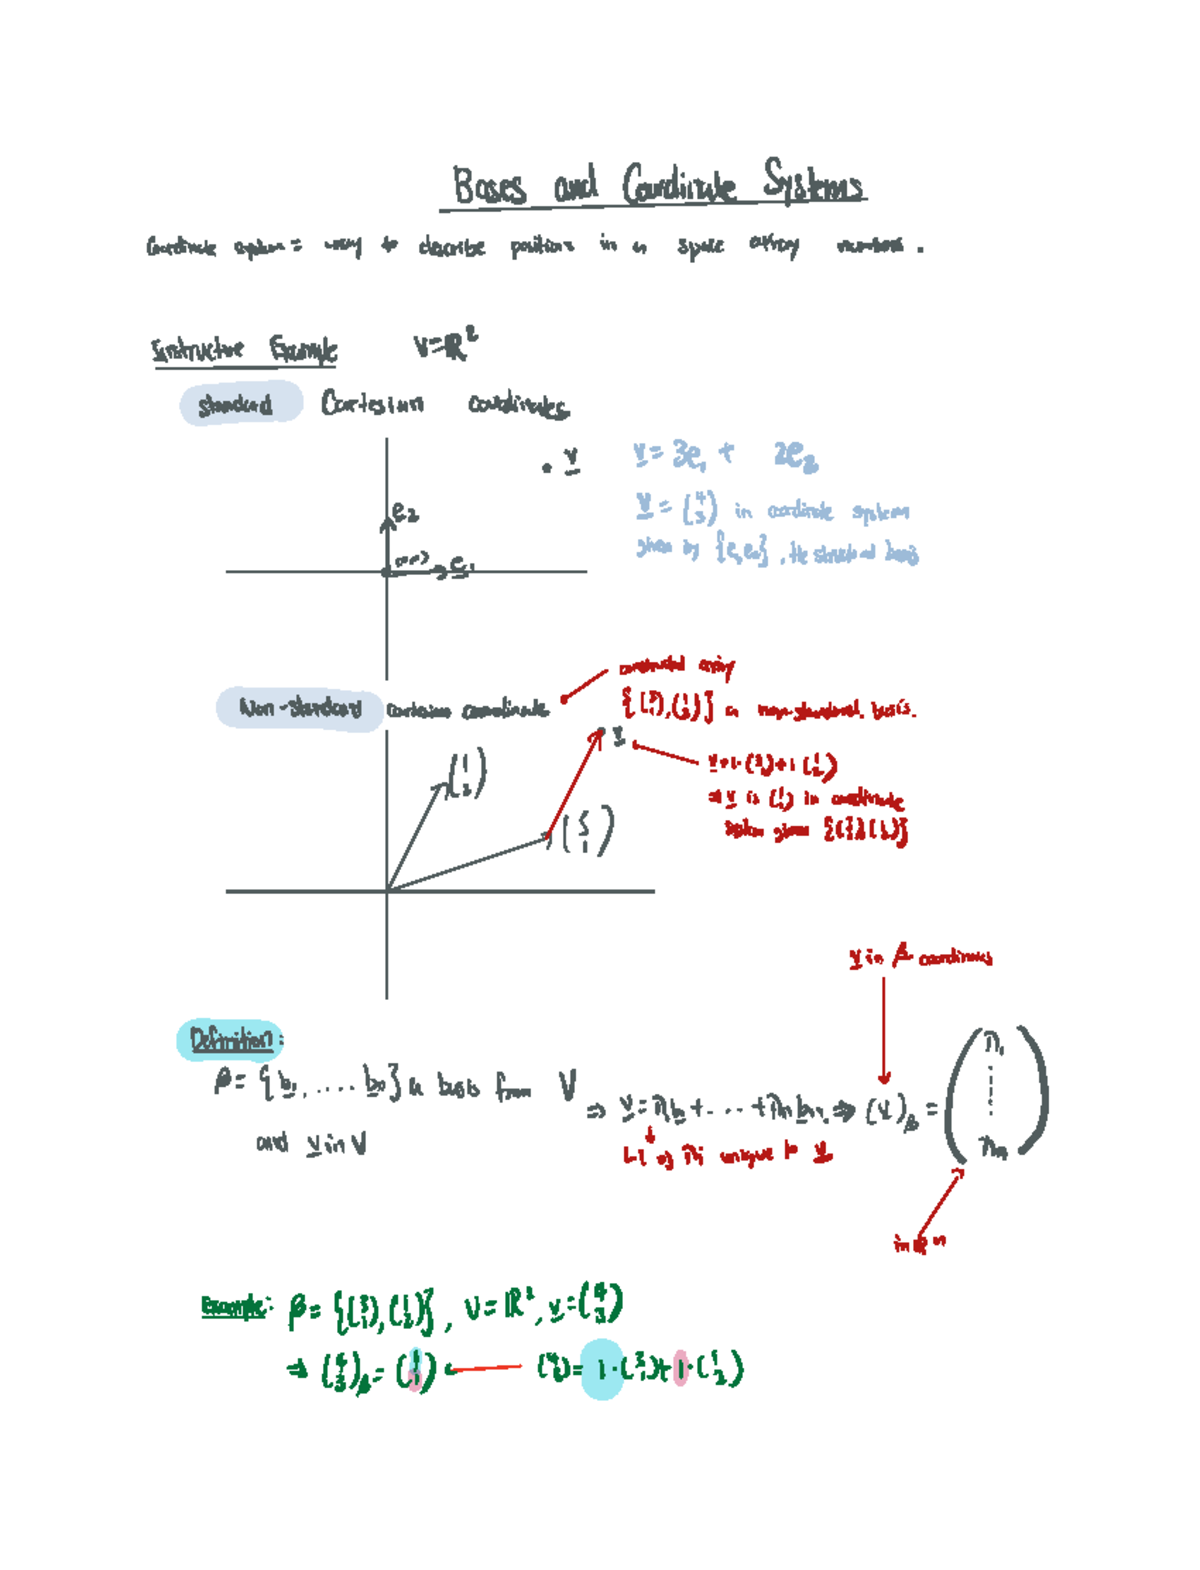 Bases and Coordinate Systems
Coordinate system = way to describe positions in a space array numbers.
Instructive Example V=ℝ²
standard Cartesian coordinates
• v
v = 3e₁ + 2e₂
e₂
v = (4 3) in coordinate system
given by {e₁e₂}, the standard basis
e₁
constructed array
Non-standard cartesian coordinate
{(3 1),(1 2)} a non-standard basis.
v
(1 2)
v=1·(3 1)+1(1 2)
⇒ v is (1 1) in coordinate
system given {(3 1),(1 2)}
(3 1)
v in β coordinates
Definition:
β = {b₁, .... bₙ} a basis from V
⇒ v = λ₁b₁ + ... + λₙbₙ ⇒ (v)β = (λ₁ ⋮ λₙ)
and v in V
of λi unique to v
in ℝⁿ
Example: β = {(3 1),(1 2)}, V=ℝ², v=(4 3)
⇒ (4 3)β = (1 1)
= 1·(3 1)+1·(1 2)